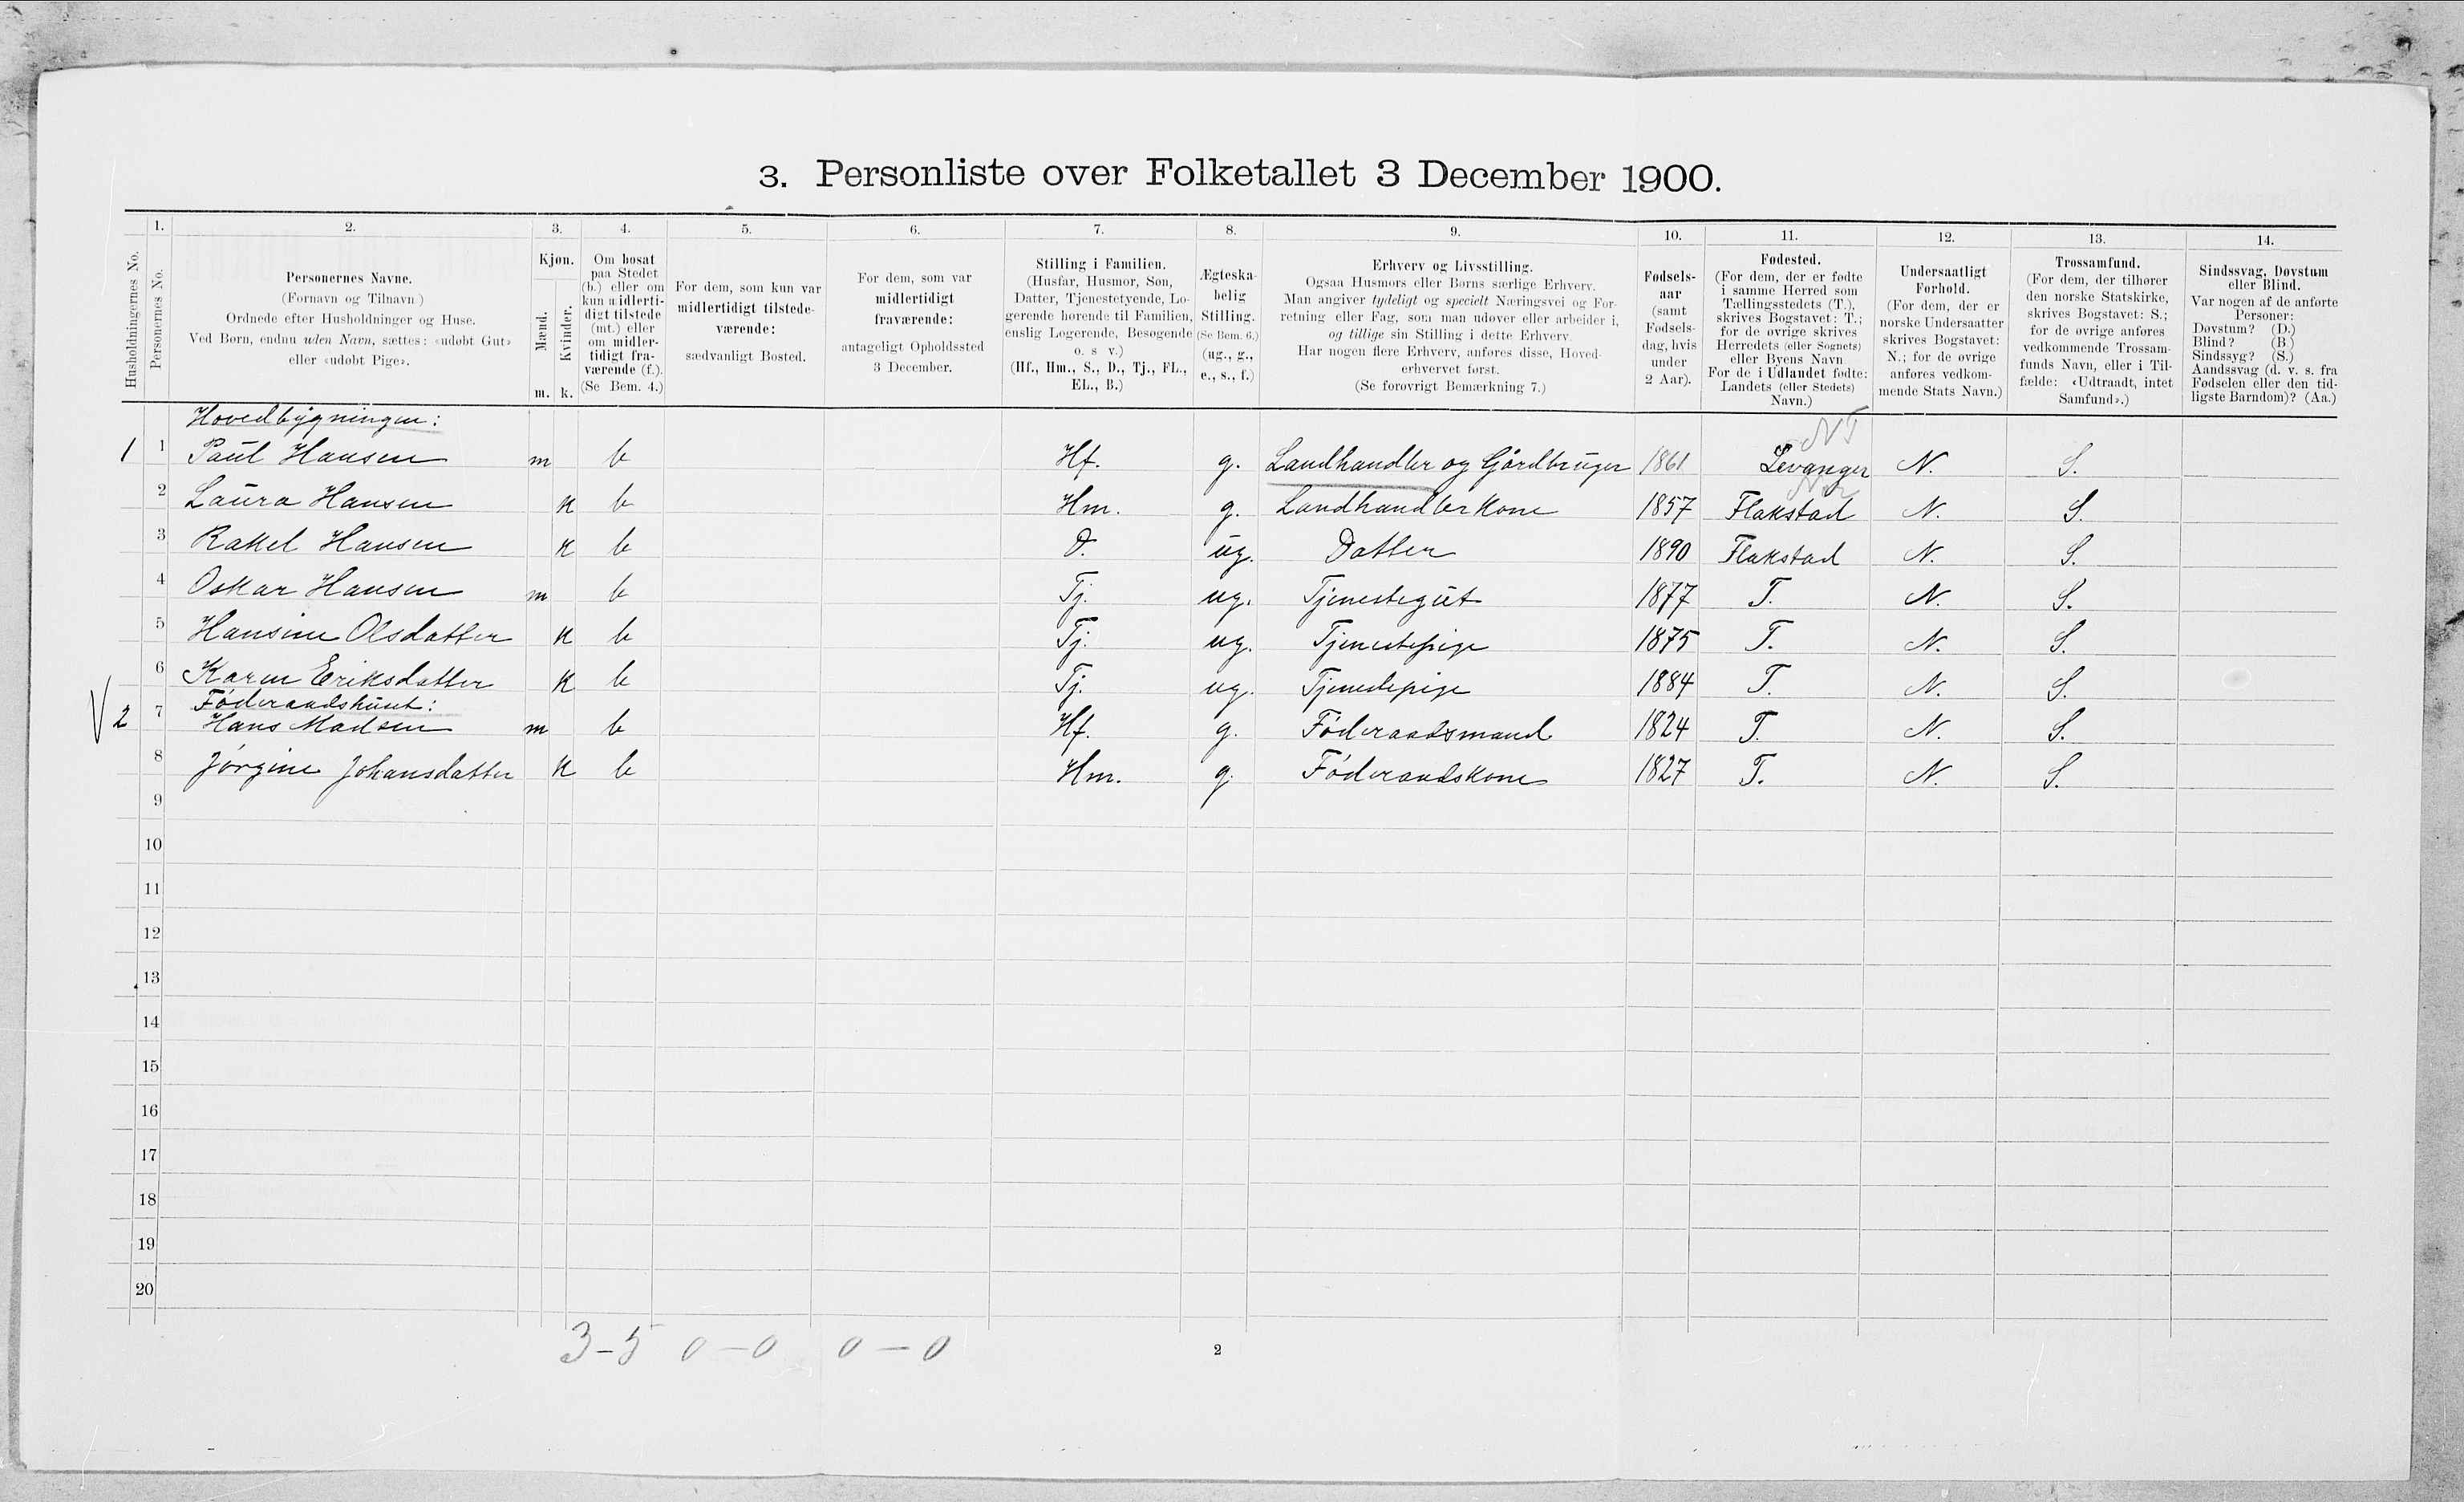 3. Personliste over Folketallet 3 December 1900.
Husholdningernes No.
1.
Personernes No.
2.
Personernes Navne.
(Fornavn og Tilnavn )
Ordnede efter Husholdninger og Huse.
Ved Børn, endnu uden Navn, sættes: «udøbt Gut»
eller «udøbt Pige».
3.
Kjøn.
Mænd.
Kvinder.
m. k.
4.
Om bosat
paa Stedet
(b.) eller om
kun midlerti-
digt tilstede
(mt.) eller
om midler-
tidigt fra-
værende (f.).
(Se Bem. 4.)
5.
For dem, som kun var
midlertidigt tilstede-
værende:
sædvanligt Bosted.
6.
For dem, som var
midlertidigt
fraværende:
antageligt Opholdssted
3 December.
7.
Stilling i Familien.
(Husfar, Husmor, Søn,
Datter, Tjenestetyende, Lo-
gerende hørende til Familien,
enslig Logerende, Besøgende
o. s v.)
(Hf., Hm., S., D., Tj., FL.,
EL., B.)
8.
Ægteska-
belig
Stilling.
(Se Bem. 6.)
(ug., g.,
e., s., f.)
9.
Erhverv og Livsstilling.
Ogsaa Husmors eller Børns særlige Erhverv.
Man angiver tydeligt og specielt Næringsvei og For-
retning eller Fag, som man udøver eller arbeider i,
og tillige sin Stilling i dette Erhverv.
Har nogen flere Erhverv, anføres disse, Hoved-
erhvervet først.
(Se forøvrigt Bemærkning 7.)
10.
Fødsels-
aar
(samt
Fødsels-
dag, hvis
under
2 Aar).
11.
Fødested.
(For dem, der er fødte
i samme Herred som
Tællingsstedets (T.),
skrives Bogstavet: T.;
for de øvrige skrives
Herredets (eller Sognets)
eller Byens Navn
For de i Udlandet fødte:
Landets (eller Stedets)
Navn.)
12.
Undersaatligt
Forhold.
(For dem, der er
norske Undersaatter
skrives Bogstavet:
N.; for de øvrige
anføres vedkom-
mende Stats Navn.)
13.
Trossamfund.
(For dem, der tilhører
den norske Statskirke,
skrives Bogstavet: S.;
for de øvrige anføres
vedkommende Trossam-
funds Navn, eller i Til-
fælde: «Udtraadt, intet
Samfund».)
14.
Sindssvag, Døvstum
eller Blind.
Var nogen af de anførte
Personer:
Døvstum? (D.)
Blind? (B.)
Sindssyg? (S.)
Aandssvag (d. v. s. fra
Fødselen eller den tid-
ligste Barndom)? (Aa.)
Hovedbygningen:
NT
1 1 Paul Hansen m b Hf. g. Landhandler og Gårdbruger 1861 Levanger N. S.
2 Laura Hansen k b Hm. g. Landhandlerkone 1857 Flakstad N. S.
3 Rakel Hansen k b D. ug. Datter 1890 Flakstad N. S.
4 Oskar Hansen m b Tj. ug. Tjenestegut 1877 T. N. S.
5 Hansine Olsdatter k b Tj. ug. Tjenestepige 1875 T. N. S.
6 Karen Eriksdatter k b Tj. ug. Tjenestepige 1884 T. N. S.
Føderaadshuset:
2 7 Hans Madsen m b Hf. g. Føderaadsmand 1824 T. N. S.
8 Jørgine Johansdatter k b Hm. g. Føderaadskone 1827 T. N. S.
9
10
11
12
13
14
15
16
17
18
19
20
3-5 0-0 0-0
2